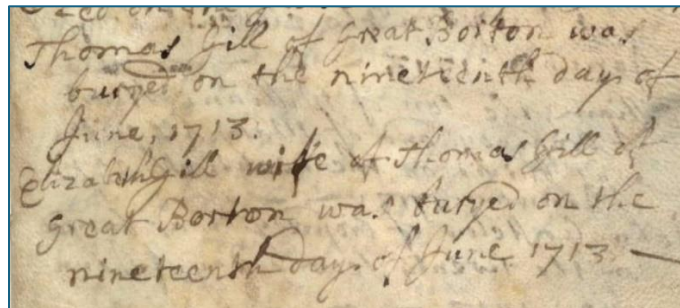 Thomas Gill of Great Borton was
buryed on the nineteenth day of
June, 1713.
Elizabeth Gill wife of Thomas Gill of
Great Borton was buryed on the
nineteenth day of June 1713